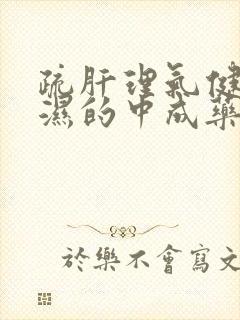 疏肝理氣健
濕的中成藥
於樂不會寫文